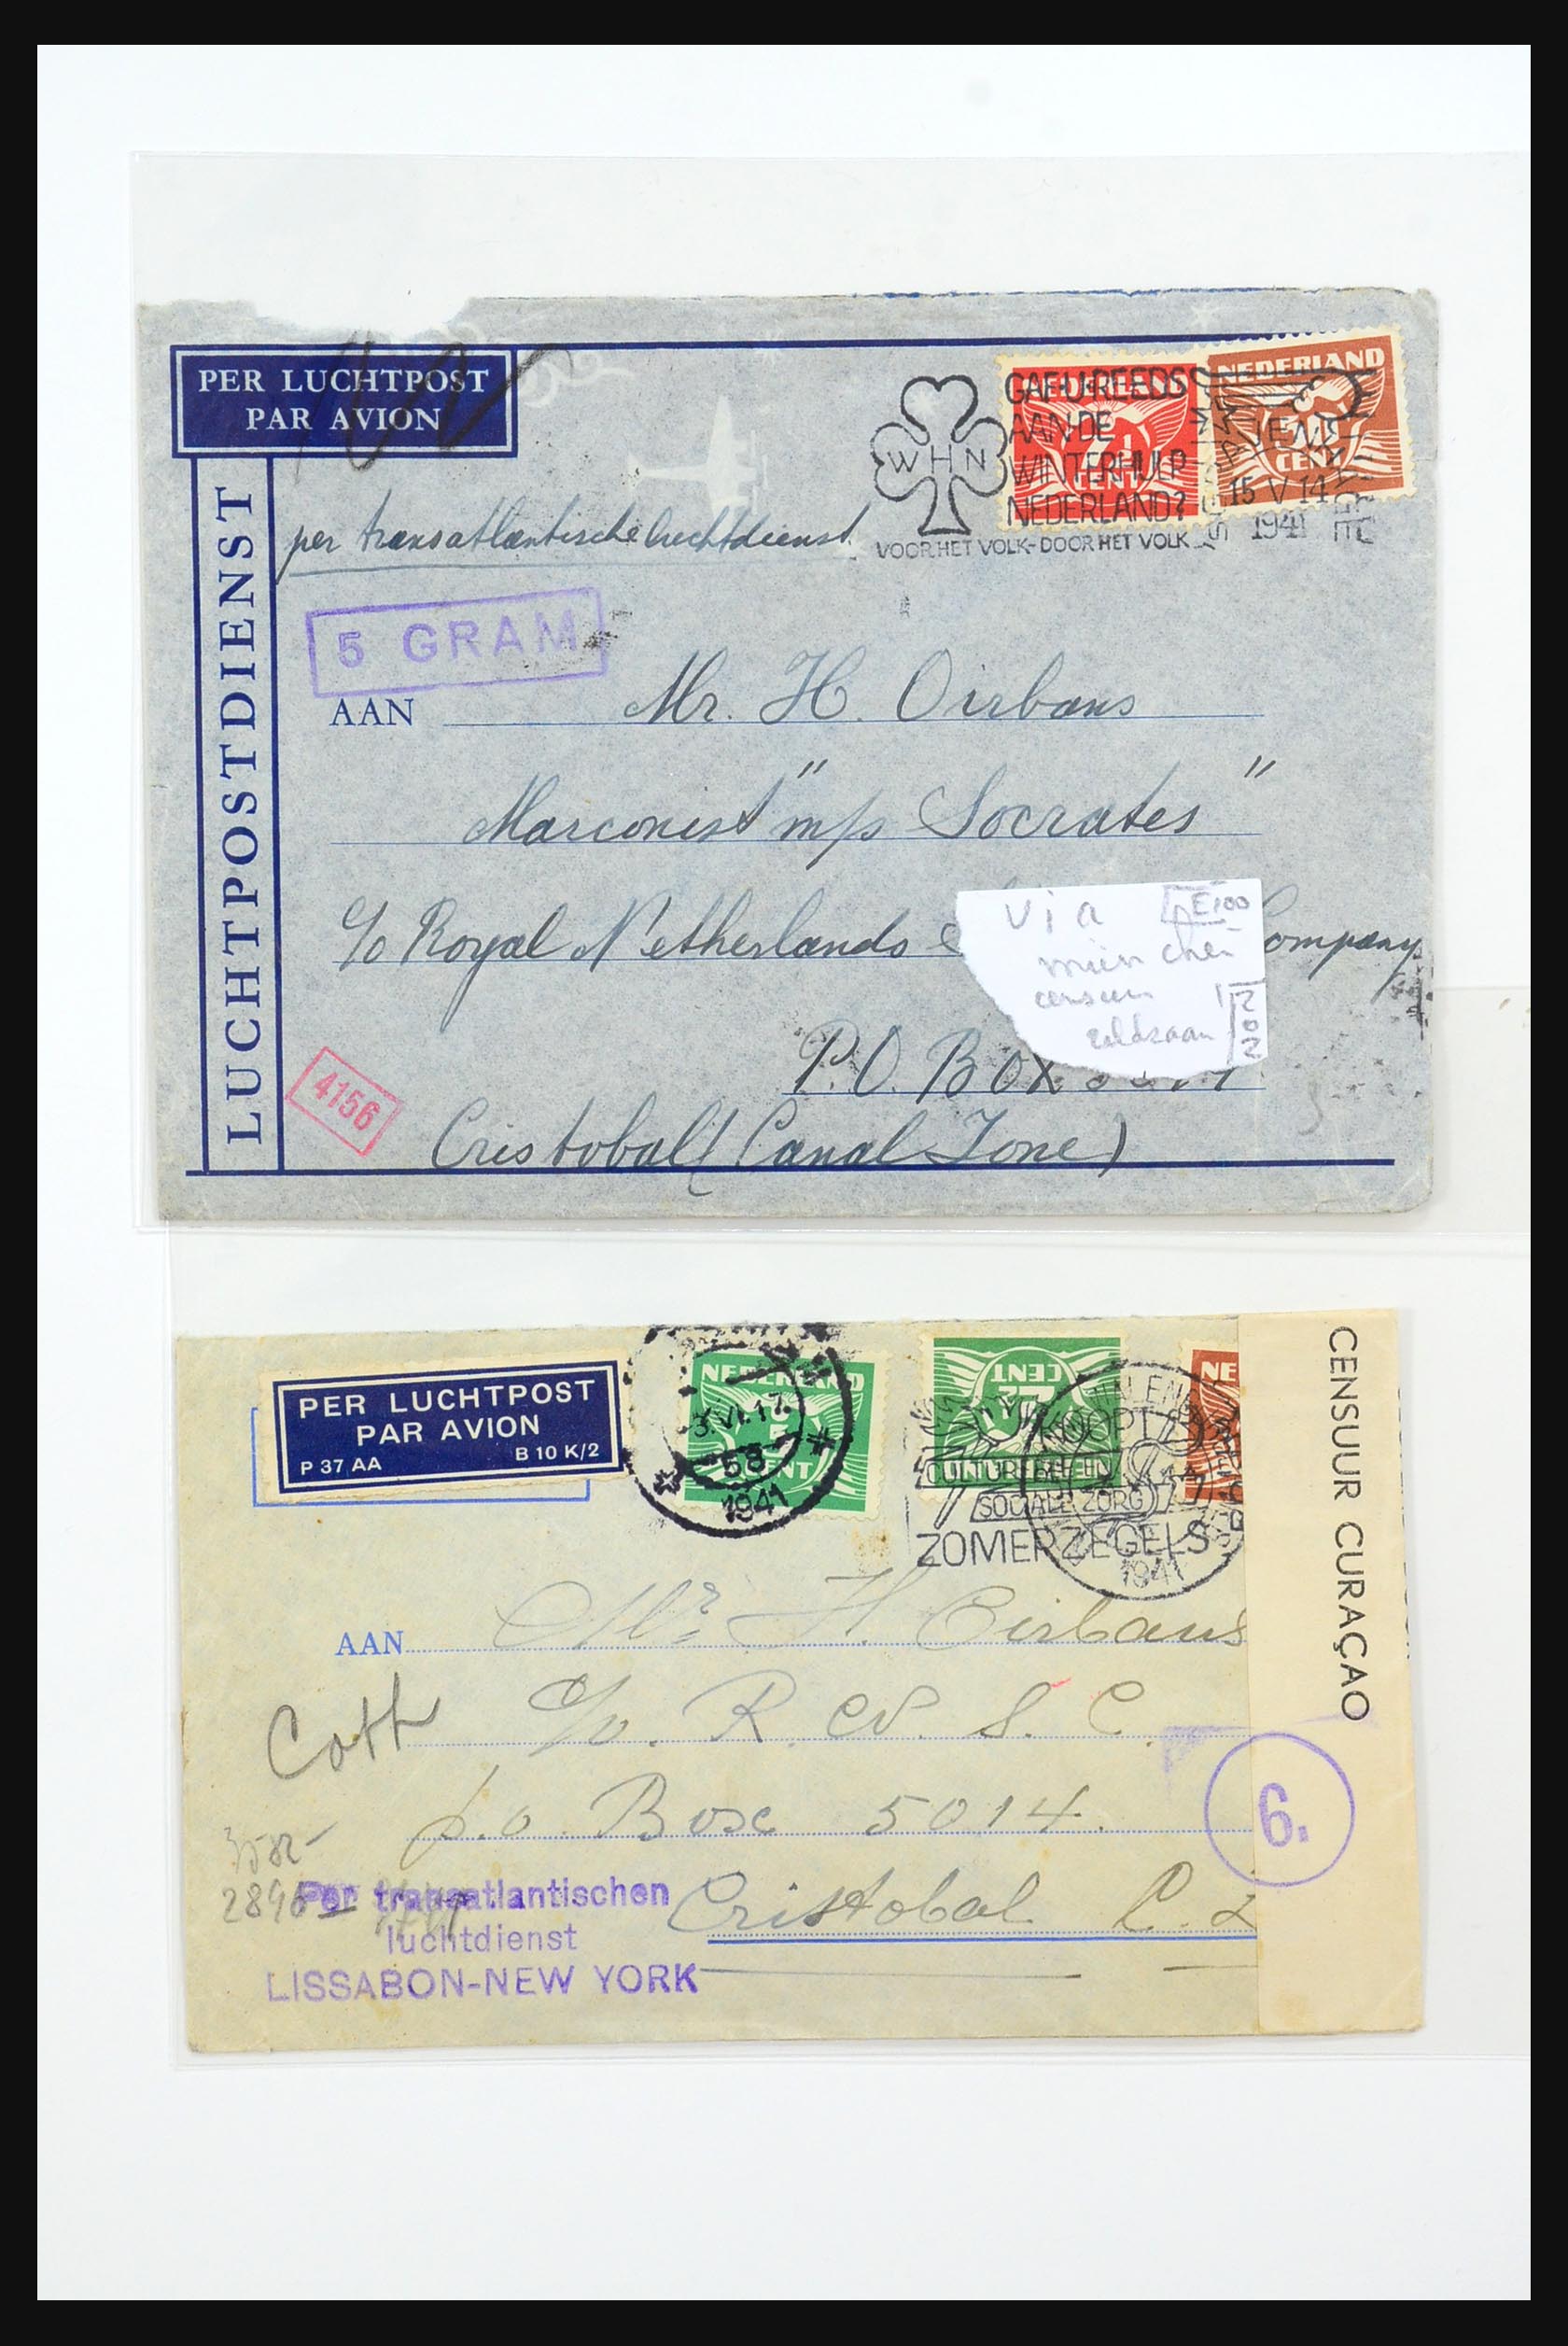 PER LUCHTPOST
PAR AVION
LUCHTPOSTDIENST
per transatlantische luchtdienst
5 GRAM
WHN
GAF U REEDS
AAN DE
WINTERHULP
NEDERLAND?
VOOR HET VOLK-DOOR HET VOLK
NEDERLAND
7½
CENT
NEDERLAND
CENT
15 V 14
1941
AAN Mr. H. Oirbans
Marconist "m/s Socrates"
c/o Royal Netherlands Company
P.O. Box
Cristobal (Canal Zone)
4156
via E100
censuur
zeldzaam 202
PER LUCHTPOST
PAR AVION
P 37 AA B 10 K/2
NEDERLAND
CENT
58
1941
CENT
NE
KOOPT
CULTUREELE EN
SOCIALE ZORG
ZOMERZEGELS
1941
CENSUUR CURAÇAO
6.
AAN Mr. H Oirbans
c/o. R. N. S. C.
p.o. Box 5014.
Cristobal C.Z
Per transatlantischen
luchtdienst
LISSABON-NEW YORK